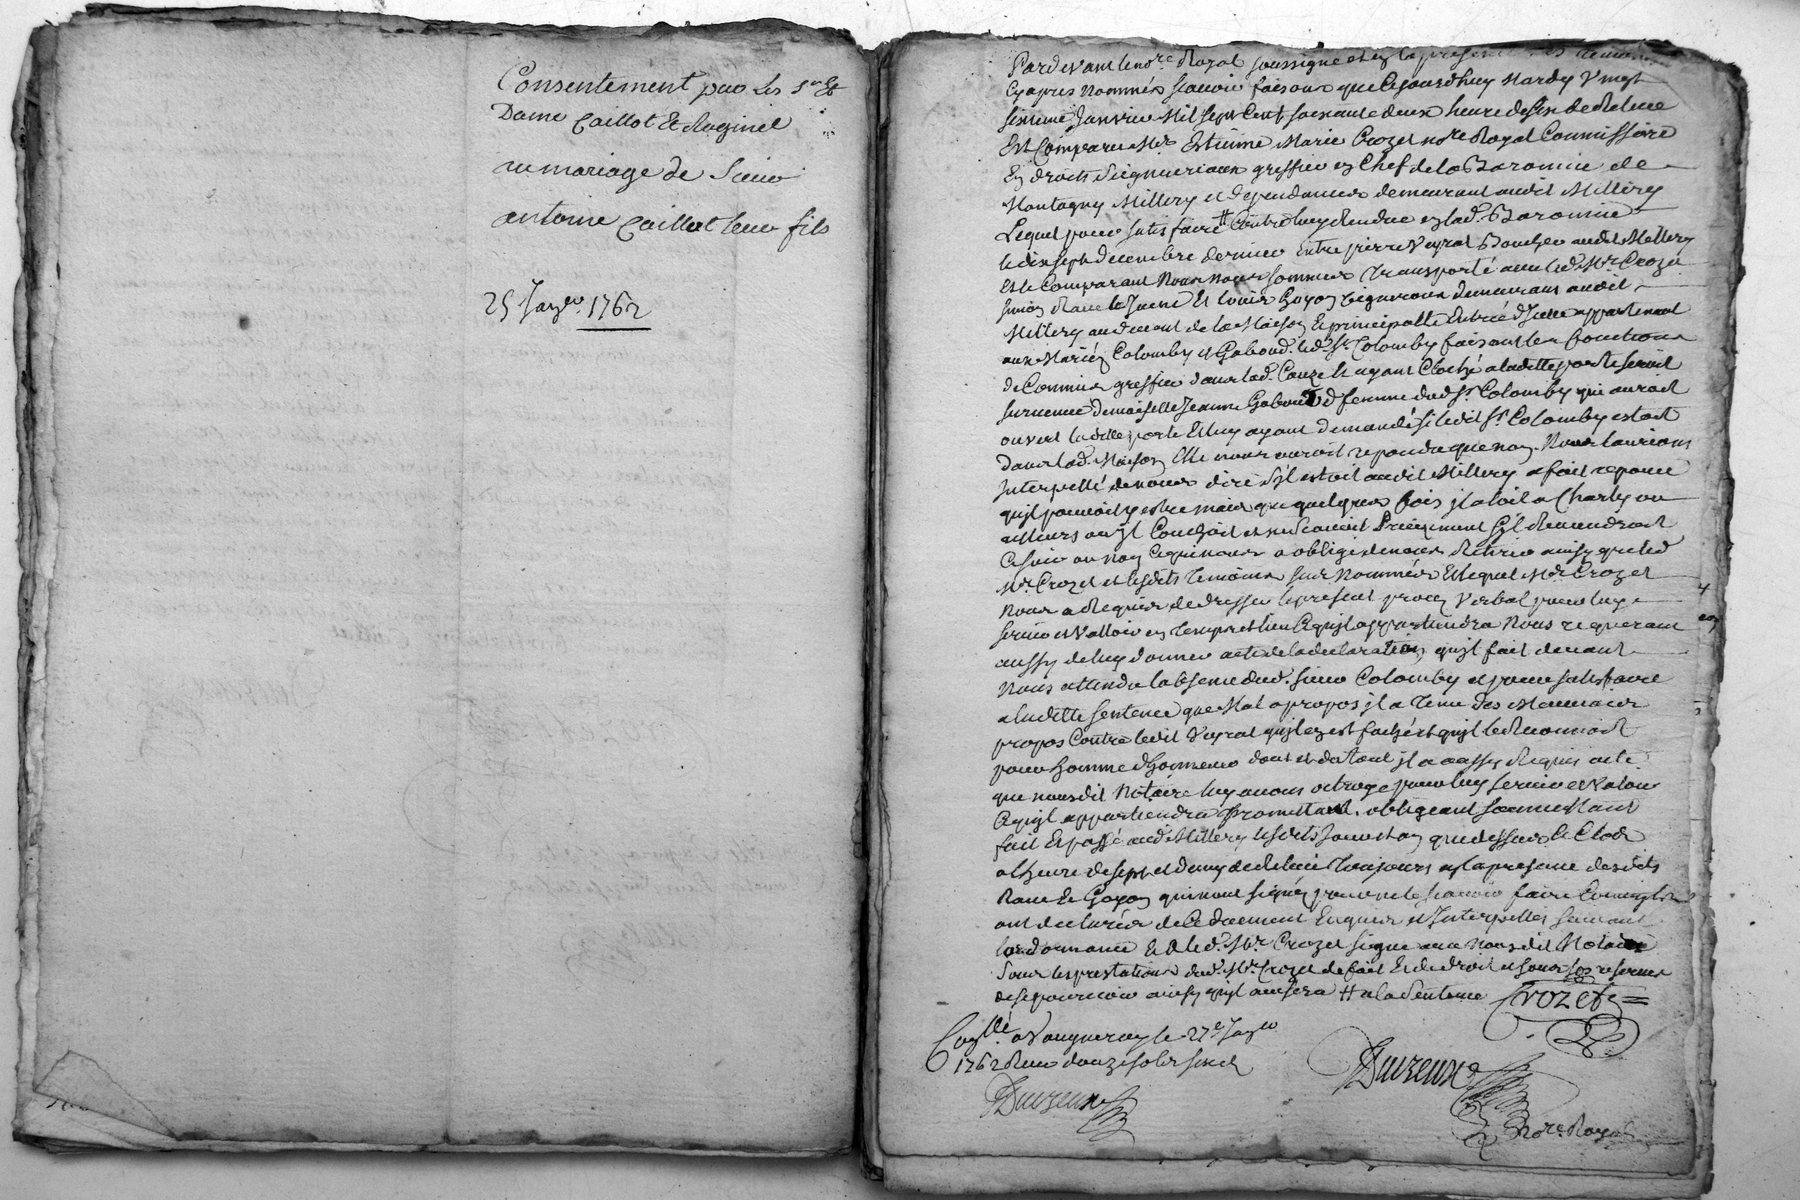 Consentement par Les Sr Et
Dame Caillot Et Raginel
au mariage de Sieur
antoine Caillot leur fils
25 Janvr. 1762
Pardevant le nore. Royal soussigné et en la presence des temoins
Cy apres Nommés scavoir faisons que Cejourdhuy Mardy Vingt
sixieme Janvier Mil sept Cent soixante deux heure de six de Relevée
Est Comparu Mr. Estienne Marie Crozet nore Royal Commissaire
En droits Seigneuriaux greffier en Chef de la Baronnie de
Montagny Millery et dependances demeurant audit Millery
Lequel pour satisfaire # Contre luy Rendue en lad. Baronnie
le dix sept decembre dernier Entre pierre Veyrat Boucher audit Millery
et le Comparant Nous nous sommes transporté avec led. Mr. Crozet
Rave le Jeune Et Louis Goyon Vignerons demeurans audit
Millery au devant de la Maison Et principalle Entrée d'Icelle appartenant
aux Mariés Colomby et Gaboud. led. Sr. Colomby faisant les fonctions
de Commis greffier dans lad. Cauze Et ayant Cloché a ladite porte seroit
survenue demoiselle Jeanne Gaboud femme dud. Sr. Colomby qui auroit
ouvert ladite porte Et luy ayant demandé si ledit Sr. Colomby estoit
dans lad. Maison Elle nous auroit repondu que non. Nous laurions
Interpellé de nous dire s'il estoit audit Millery a fait reponce
quil pouvoit y estre mais que quelques fois il aloit a Charly ou
ailleurs ou il Couchoit et ne scavoit Precizement s'il Reviendroit
Ce soir ou non Ce qui nous a obligé de nous Retirer ainsy que led.
Mr. Crozet et lesdits temoins sus Nommés Et lequel Mr. Crozet
Nous a Requis de dresser le present procez Verbal pour luy
servir et Valloir en temps et lieu Ce quil appartiendra Nous requerant
aussy de luy donner acte de la declaration quil fait devant
Nous attendu labsence dud. Sieur Colomby et pour satisfaire
a ladite sentence que Mal a propos il a tenu des Mauvais
propos Contre ledit Veyrat quil en est faché et quil le Reconnoit
pour homme d'honneur dont et du tout il a aussy Requis acte
que nousdit Notaire luy avons octroyé pour luy servir et Valoir
Ce quil appartiendra Promettant. obligeant soumettant
fait Et passé audit Millery lesdits Jour et an que dessus Et Clos
a lheure de sept et demy de Relevée toujours en la presence desdits
Rave Et Goyon qui nont signé pour ne le scavoir faire Comme ils
ont declarés de Ce duement Enquis et Interpellés suivant
lordonnance Et a led. Mr. Crozet signé avec Nousdit Notaire
Sous les protestations dud. Mr. Crozet de fait Et de droit et sous les reserves
de se pourvoir ainsy quil avisera # a la Sentence
Crozet
Conllé a Vaugneray le 27e Janvr
1762 Reçu douze sols six d
Duvreux
Duvreux
Nore. Royal